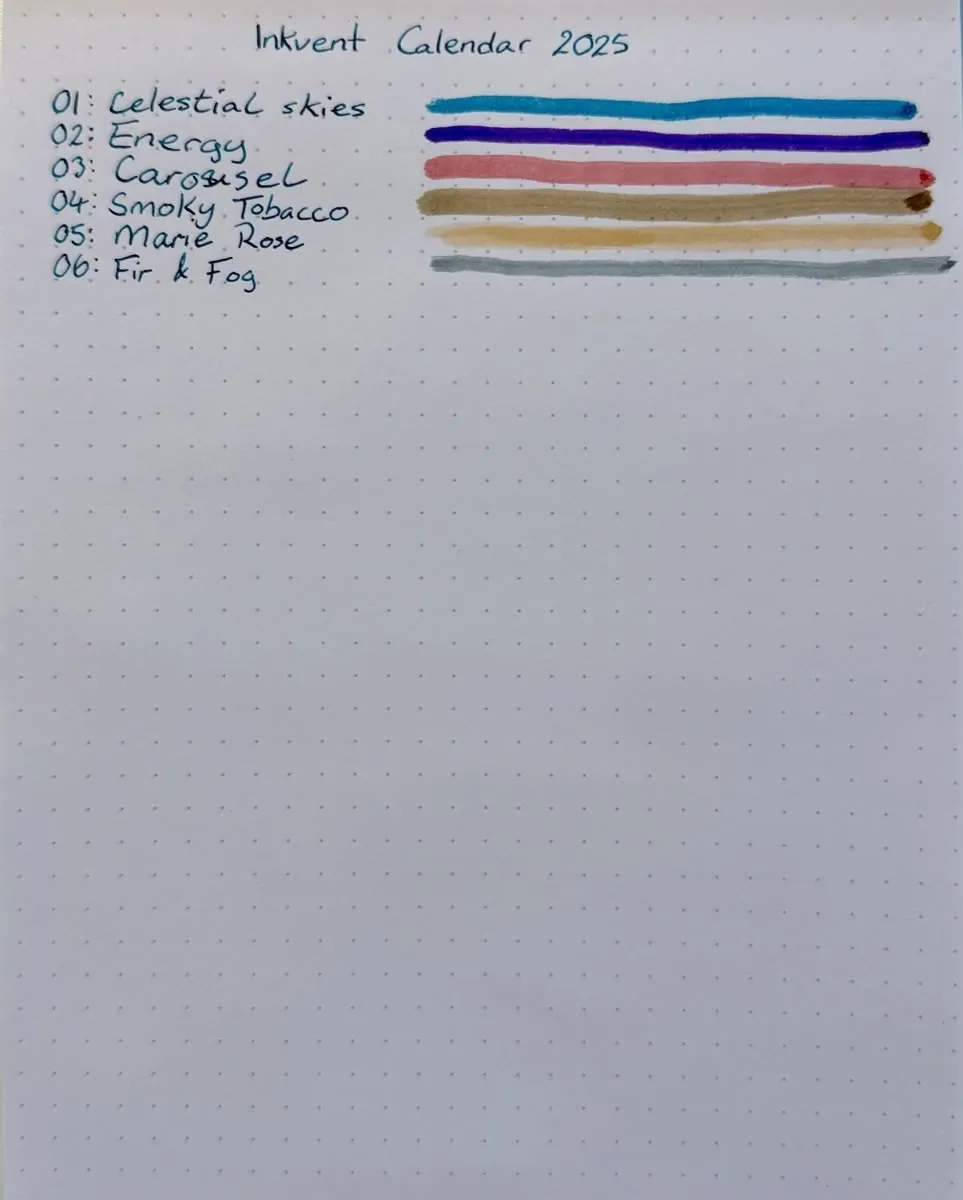 Inkvent Calendar 2025
01: Celestial skies
02: Energy
03: Carousel
04: Smoky Tobacco
05: Marie Rose
06: Fir & Fog